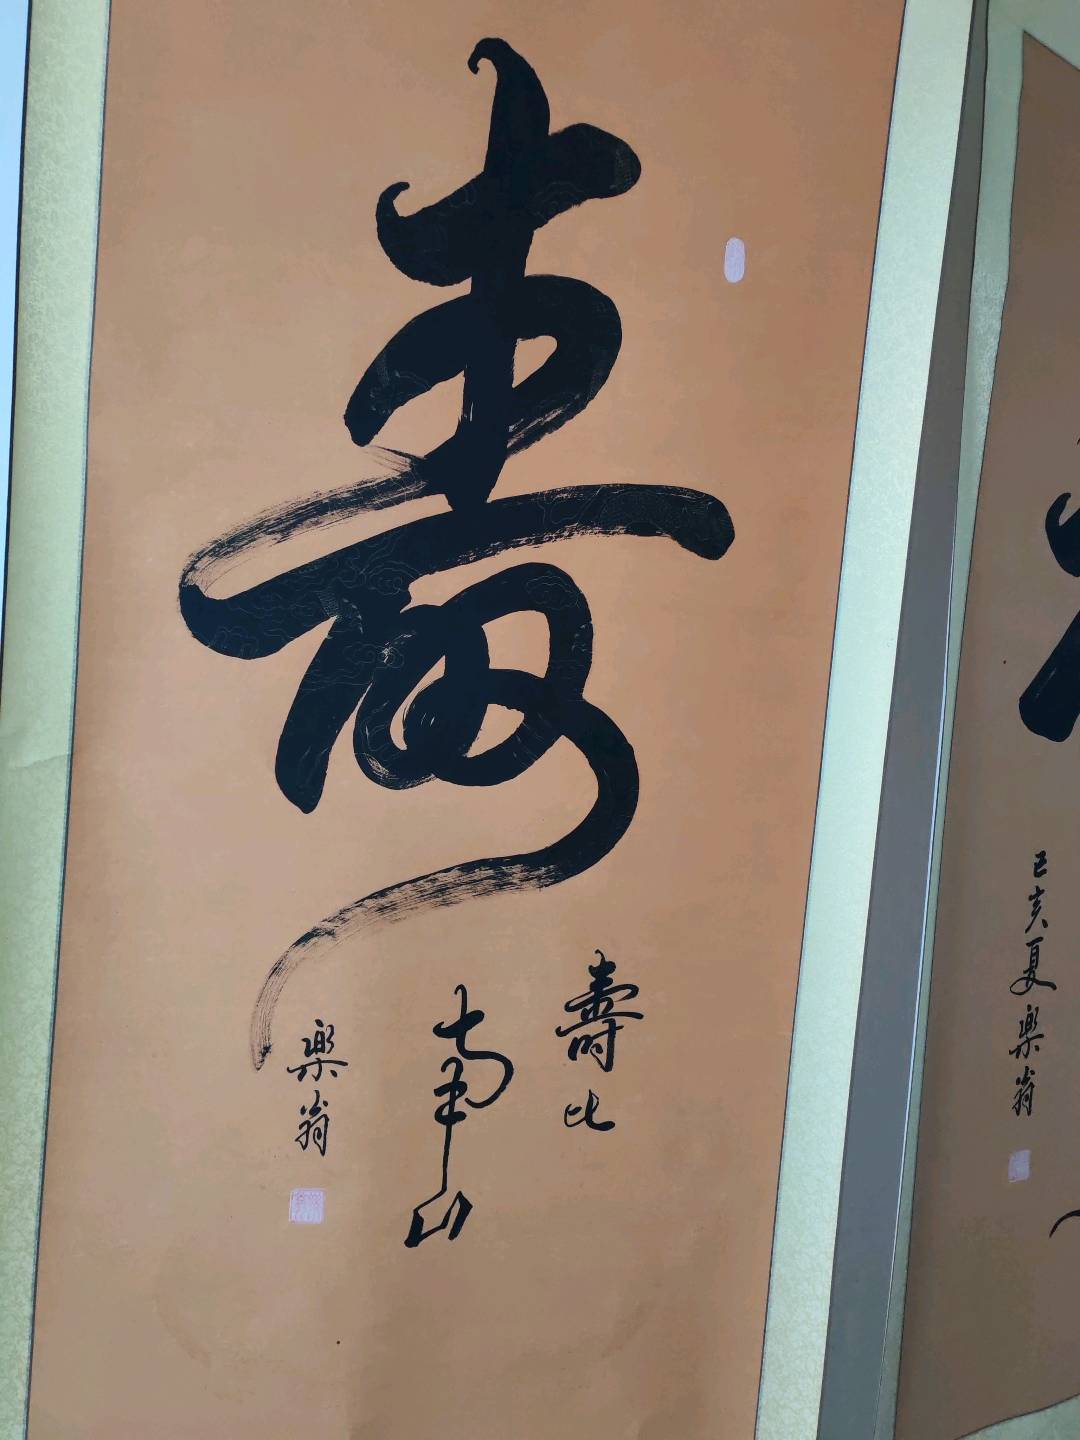 寿
壽比
南山
樂翁
己亥夏樂翁